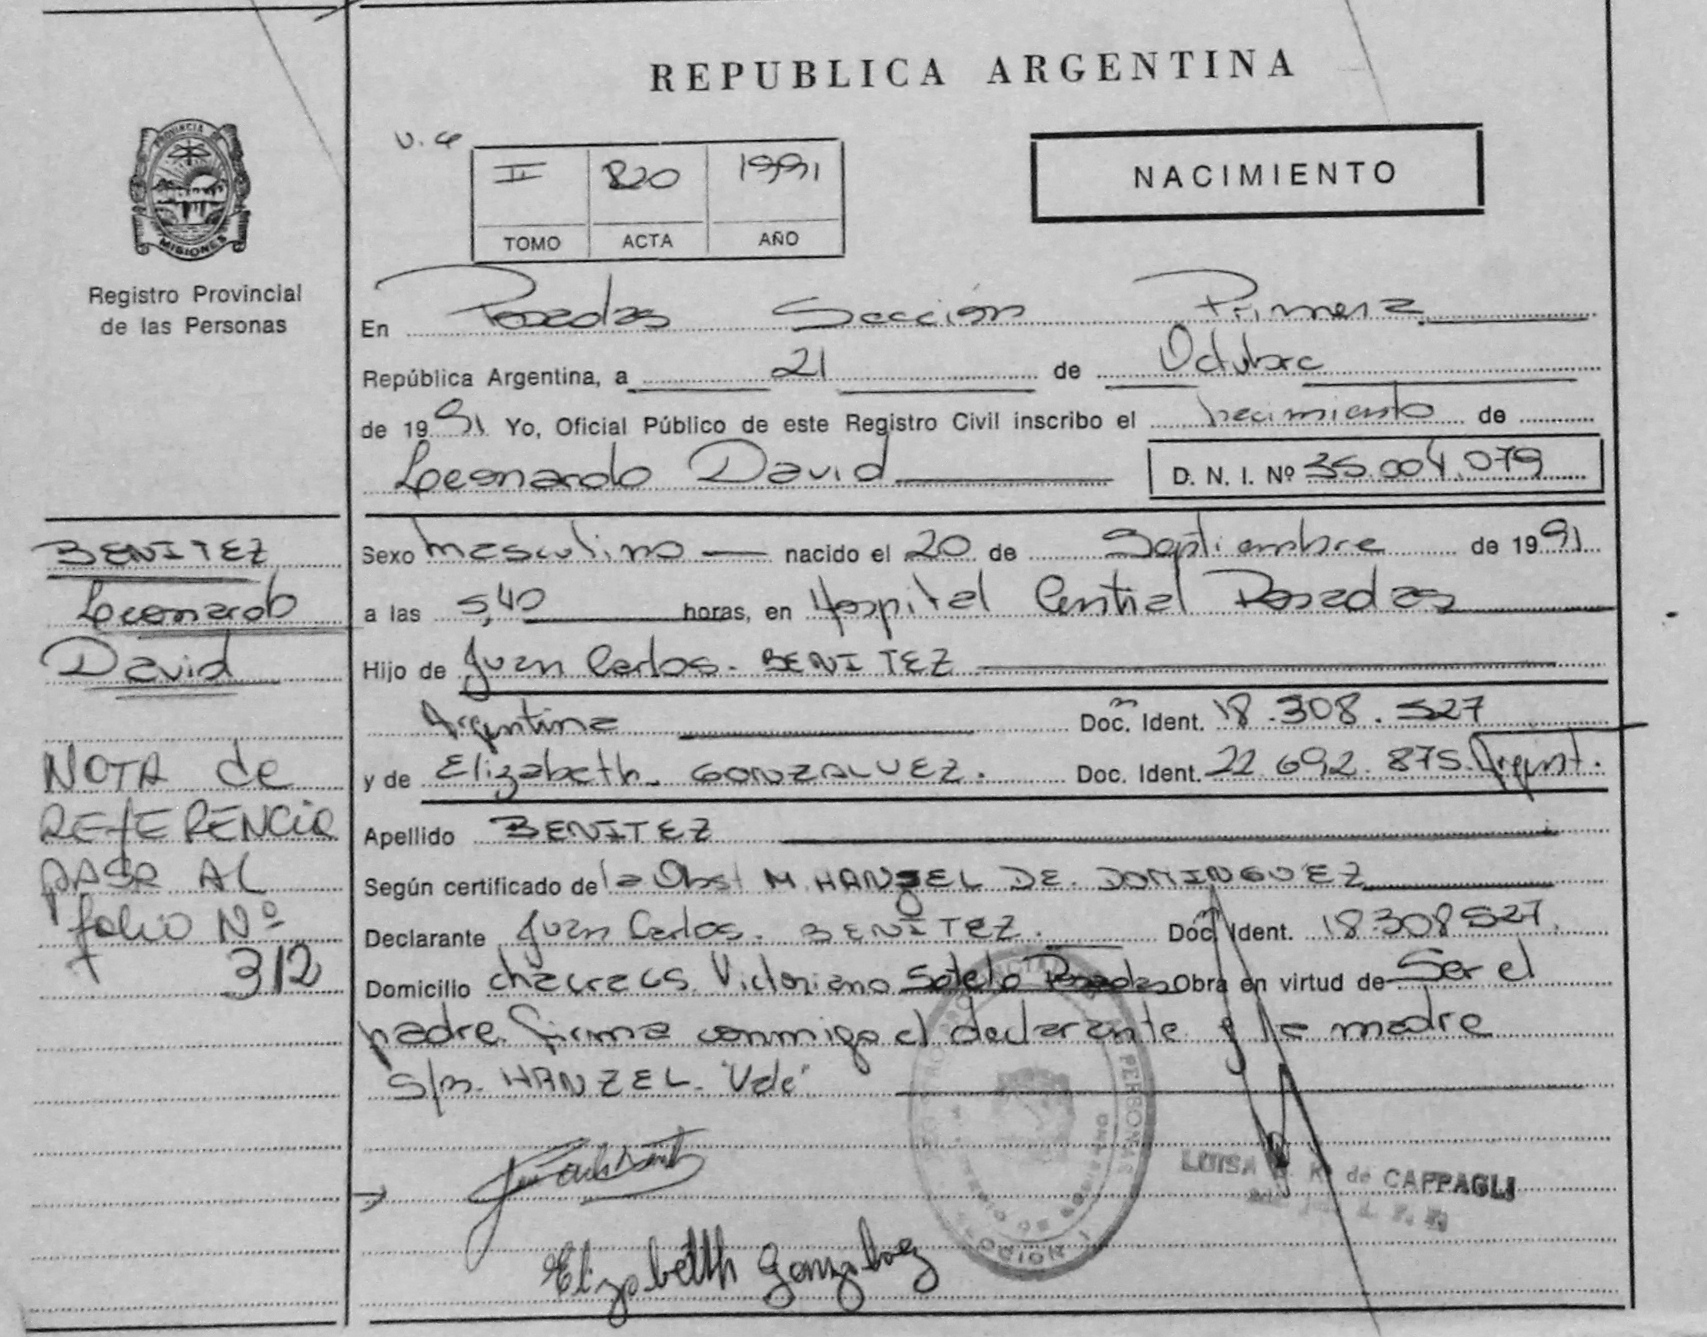 REPUBLICA ARGENTINA
PROVINCIA DE
MISIONES
Registro Provincial
de las Personas
II 820 1991
TOMO ACTA AÑO
NACIMIENTO
En Posadas Sección Primera
República Argentina, a 21 de Octubre
de 1991 Yo, Oficial Público de este Registro Civil inscribo el nacimiento de
Leonardo David D. N. I. Nº 35.004.079
BENITEZ
Leonardo
David
NOTA de
REFERENCIA
PASE AL
folio Nº
312
Sexo masculino nacido el 20 de Septiembre de 1991
a las 5,40 horas, en Hospital Central Posadas
Hijo de Juan Carlos. BENITEZ
Argentina Doc. Ident. 18.308.527
y de Elizabeth GONZALVEZ. Doc. Ident. 22.692.875. Argent.
Apellido BENITEZ
Según certificado de la Obst M. HANZEL DE. DOMINGUEZ
Declarante Juan Carlos. BENITEZ. Doc. Ident. 18.308527.
Domicilio Victoriano Sotelo Posadas Obra en virtud de Ser el
padre. firma conmigo el declarante y la madre
S/R. HANZEL. "Vale"
Elizabeth Gonzalvez
LUISA K. de CAPPAGLI